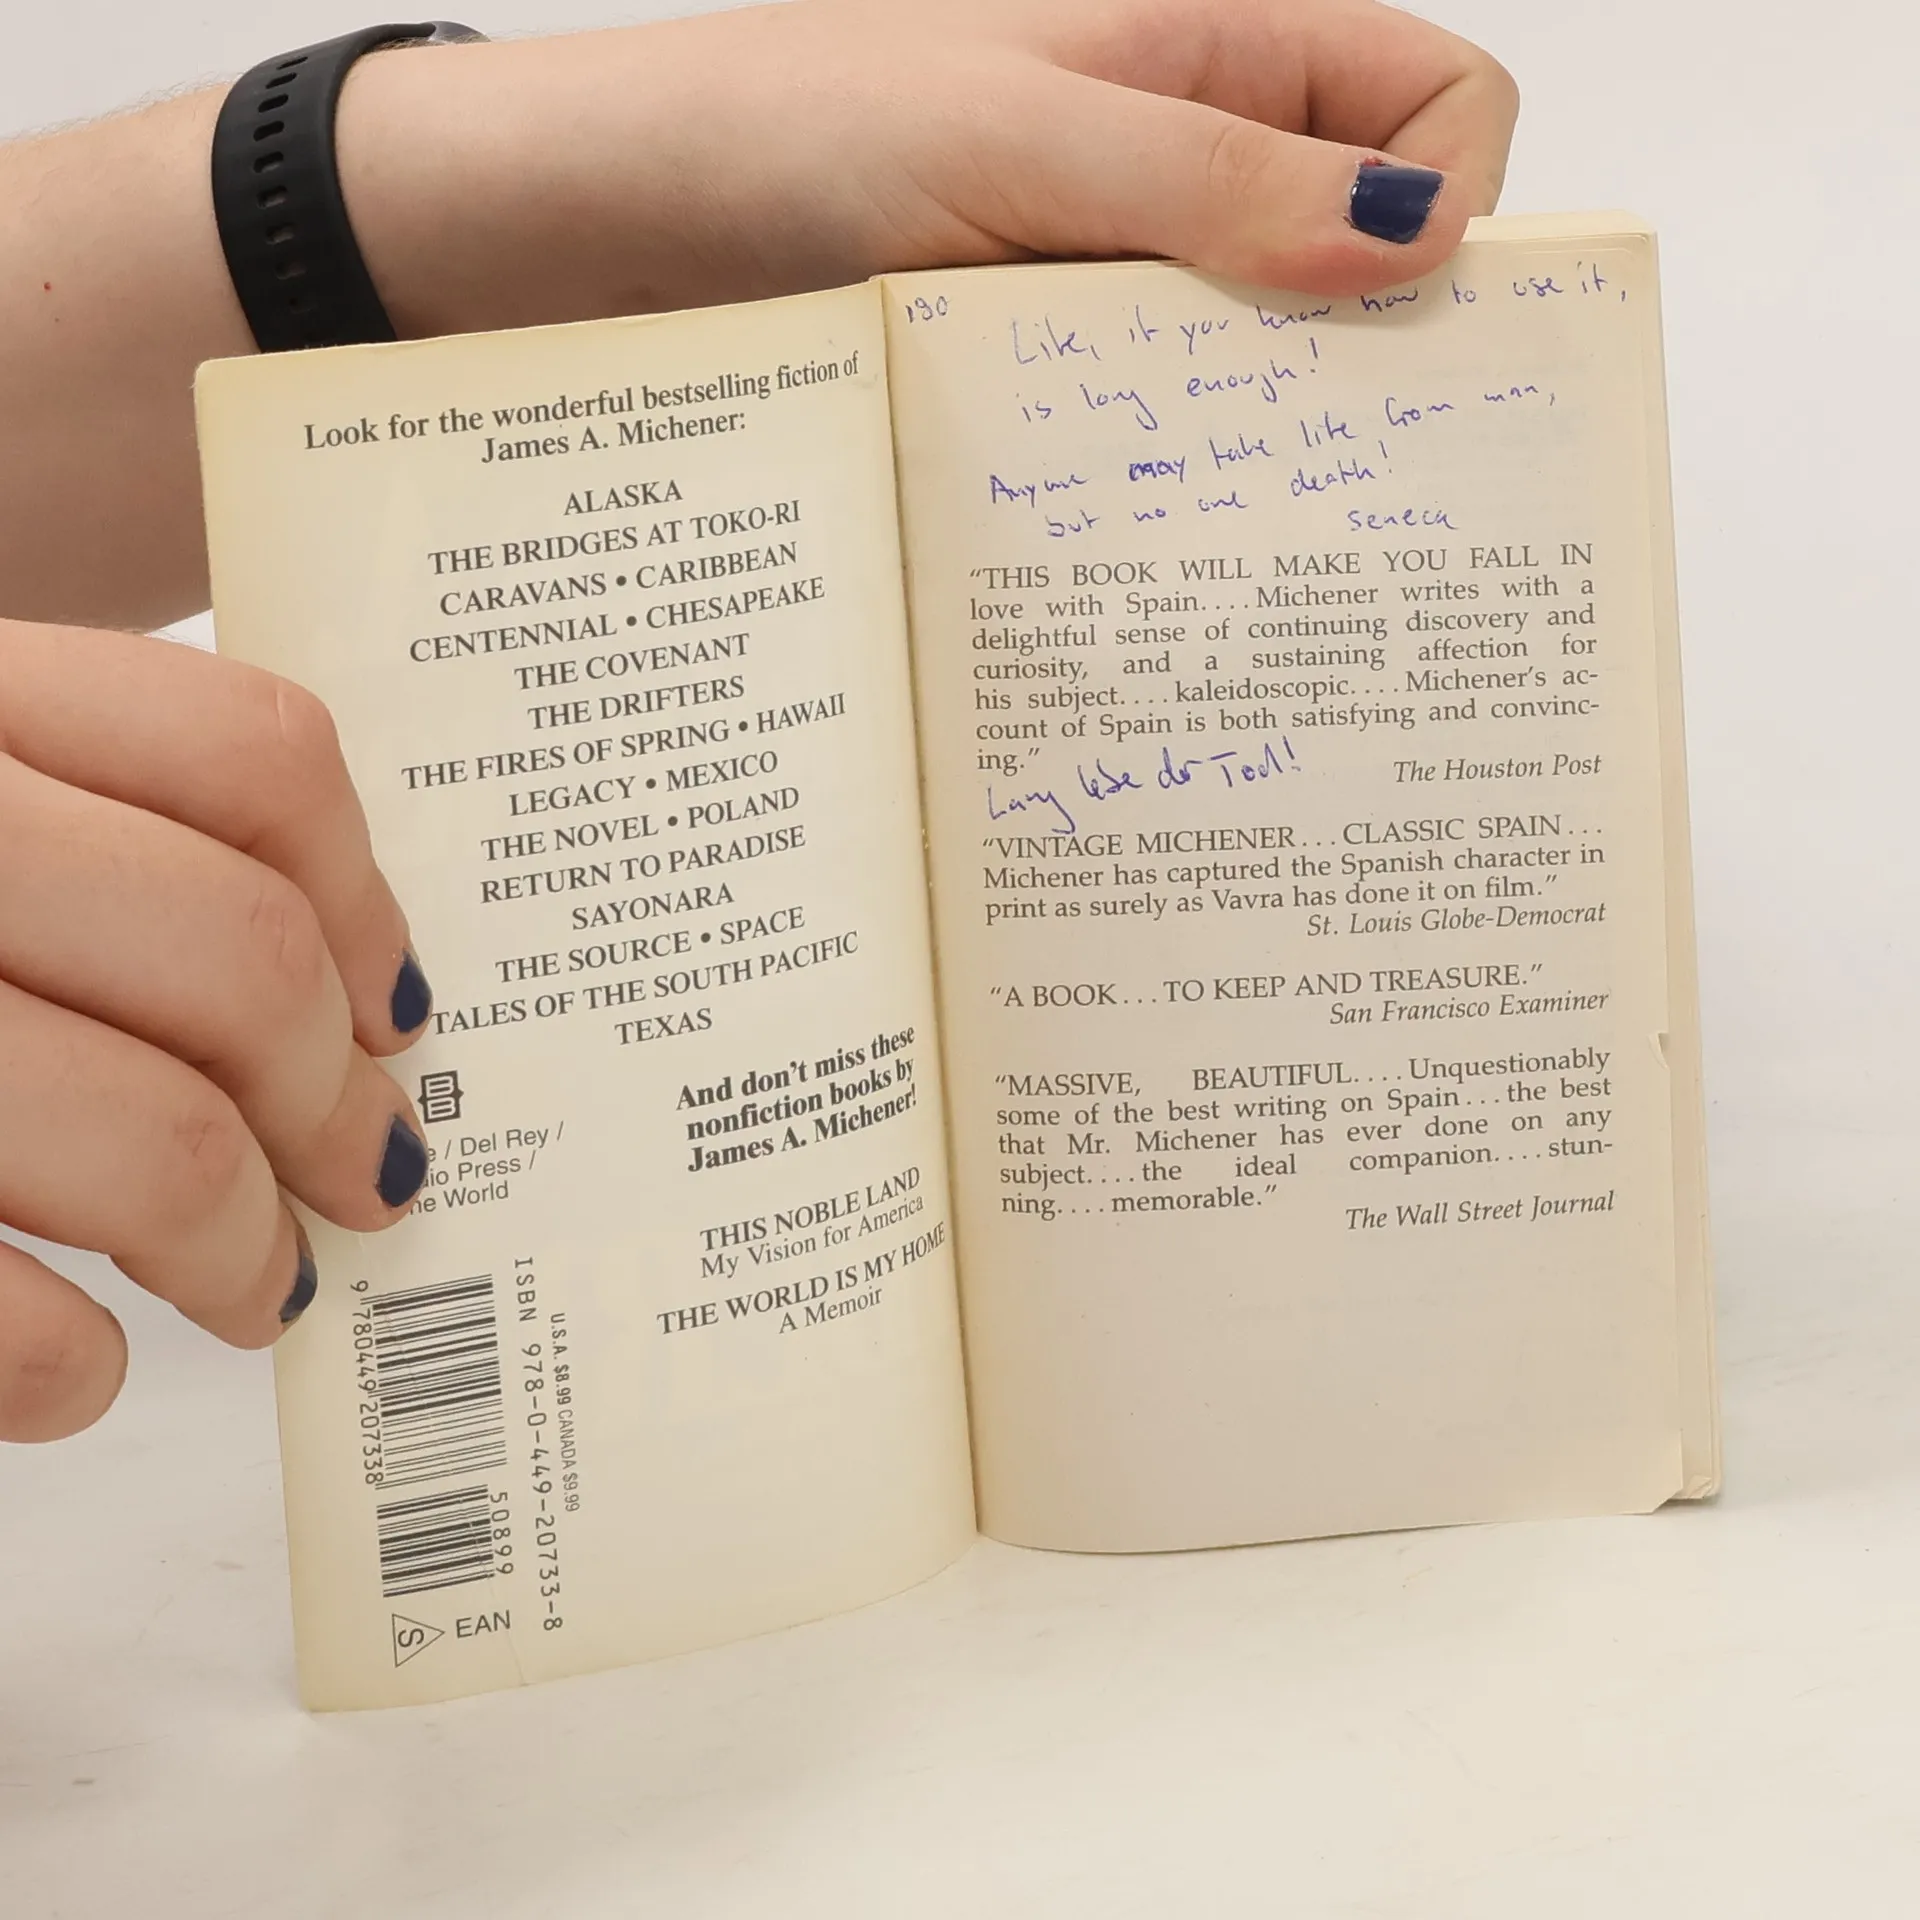 Look for the wonderful bestselling fiction of
James A. Michener:
ALASKA
THE BRIDGES AT TOKO-RI
CARAVANS • CARIBBEAN
CENTENNIAL • CHESAPEAKE
THE COVENANT
THE DRIFTERS
THE FIRES OF SPRING • HAWAII
LEGACY • MEXICO
THE NOVEL • POLAND
RETURN TO PARADISE
SAYONARA
THE SOURCE • SPACE
TALES OF THE SOUTH PACIFIC
TEXAS
And don't miss these
nonfiction books by
James A. Michener!
THIS NOBLE LAND
My Vision for America
THE WORLD IS MY HOME
A Memoir
/ Del Rey /
Press /
World
9 780449 207338
50899
ISBN 978-0-449-20733-8
U.S.A. $8.99 CANADA $9.99
S EAN
190
Life, if you know how to use it,
is long enough!
Anyone may take life from man,
but no one death!
Seneca
"THIS BOOK WILL MAKE YOU FALL IN
love with Spain. . . . Michener writes with a
delightful sense of continuing discovery and
curiosity, and a sustaining affection for
his subject. . . . kaleidoscopic. . . . Michener's ac-
count of Spain is both satisfying and convinc-
ing."
The Houston Post
Lang lebe der Tod!
"VINTAGE MICHENER . . . CLASSIC SPAIN . . .
Michener has captured the Spanish character in
print as surely as Vavra has done it on film."
St. Louis Globe-Democrat
"A BOOK . . . TO KEEP AND TREASURE."
San Francisco Examiner
"MASSIVE, BEAUTIFUL. . . . Unquestionably
some of the best writing on Spain . . . the best
that Mr. Michener has ever done on any
subject. . . . the ideal companion. . . . stun-
ning. . . . memorable."
The Wall Street Journal